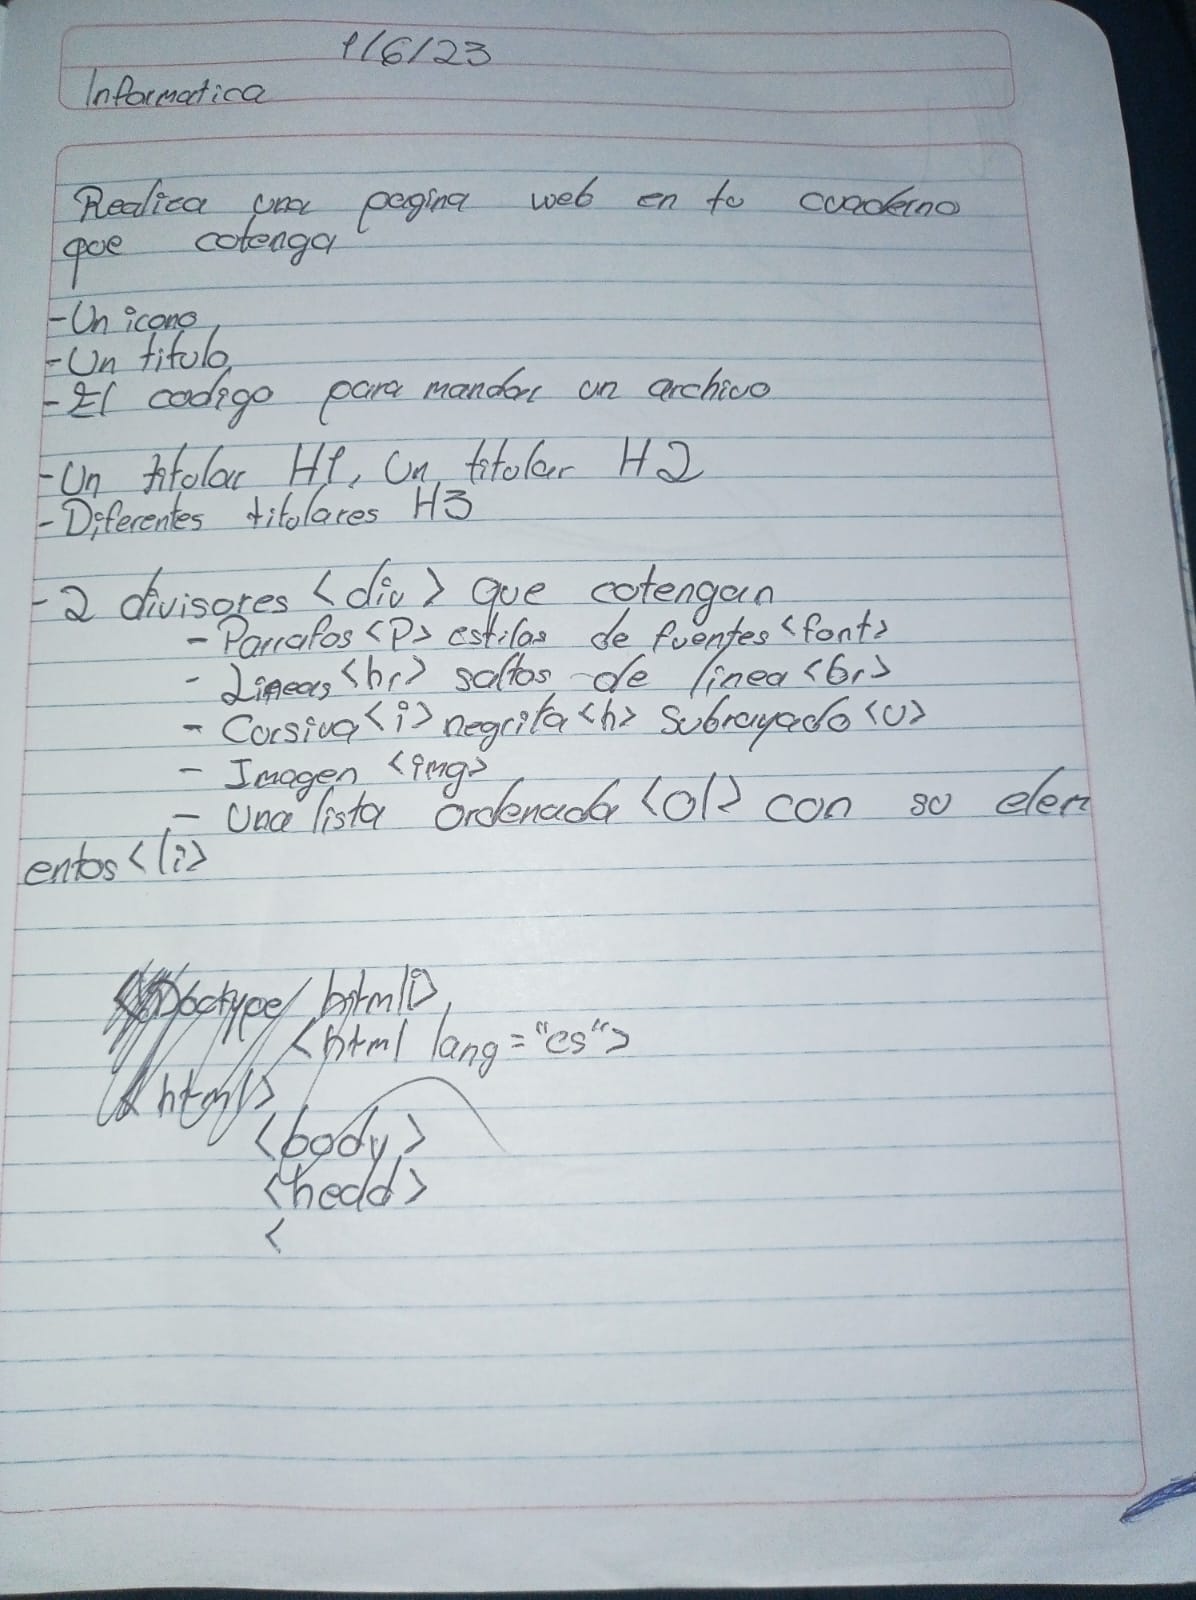 1/6/23
Informatica
Realiza una pagina web en tu cuaderno
que cotenga
-Un icono
-Un titulo
-El codigo para mandar un archivo
-Un titular H1, Un titular H2
-Diferentes titulares H3
-2 divisores <div> que cotengan
- Parrafos <P> estilos de fuentes <font>
- Lineas <hr> saltos de linea <br>
- Cursiva <i> negrita <h> Subrayado <U>
- Imagen <img>
- Una lista ordenada <ol> con su elem
entos <li>
Doctype html>
<html lang="es">
<html>
<body>
<hedd>
<